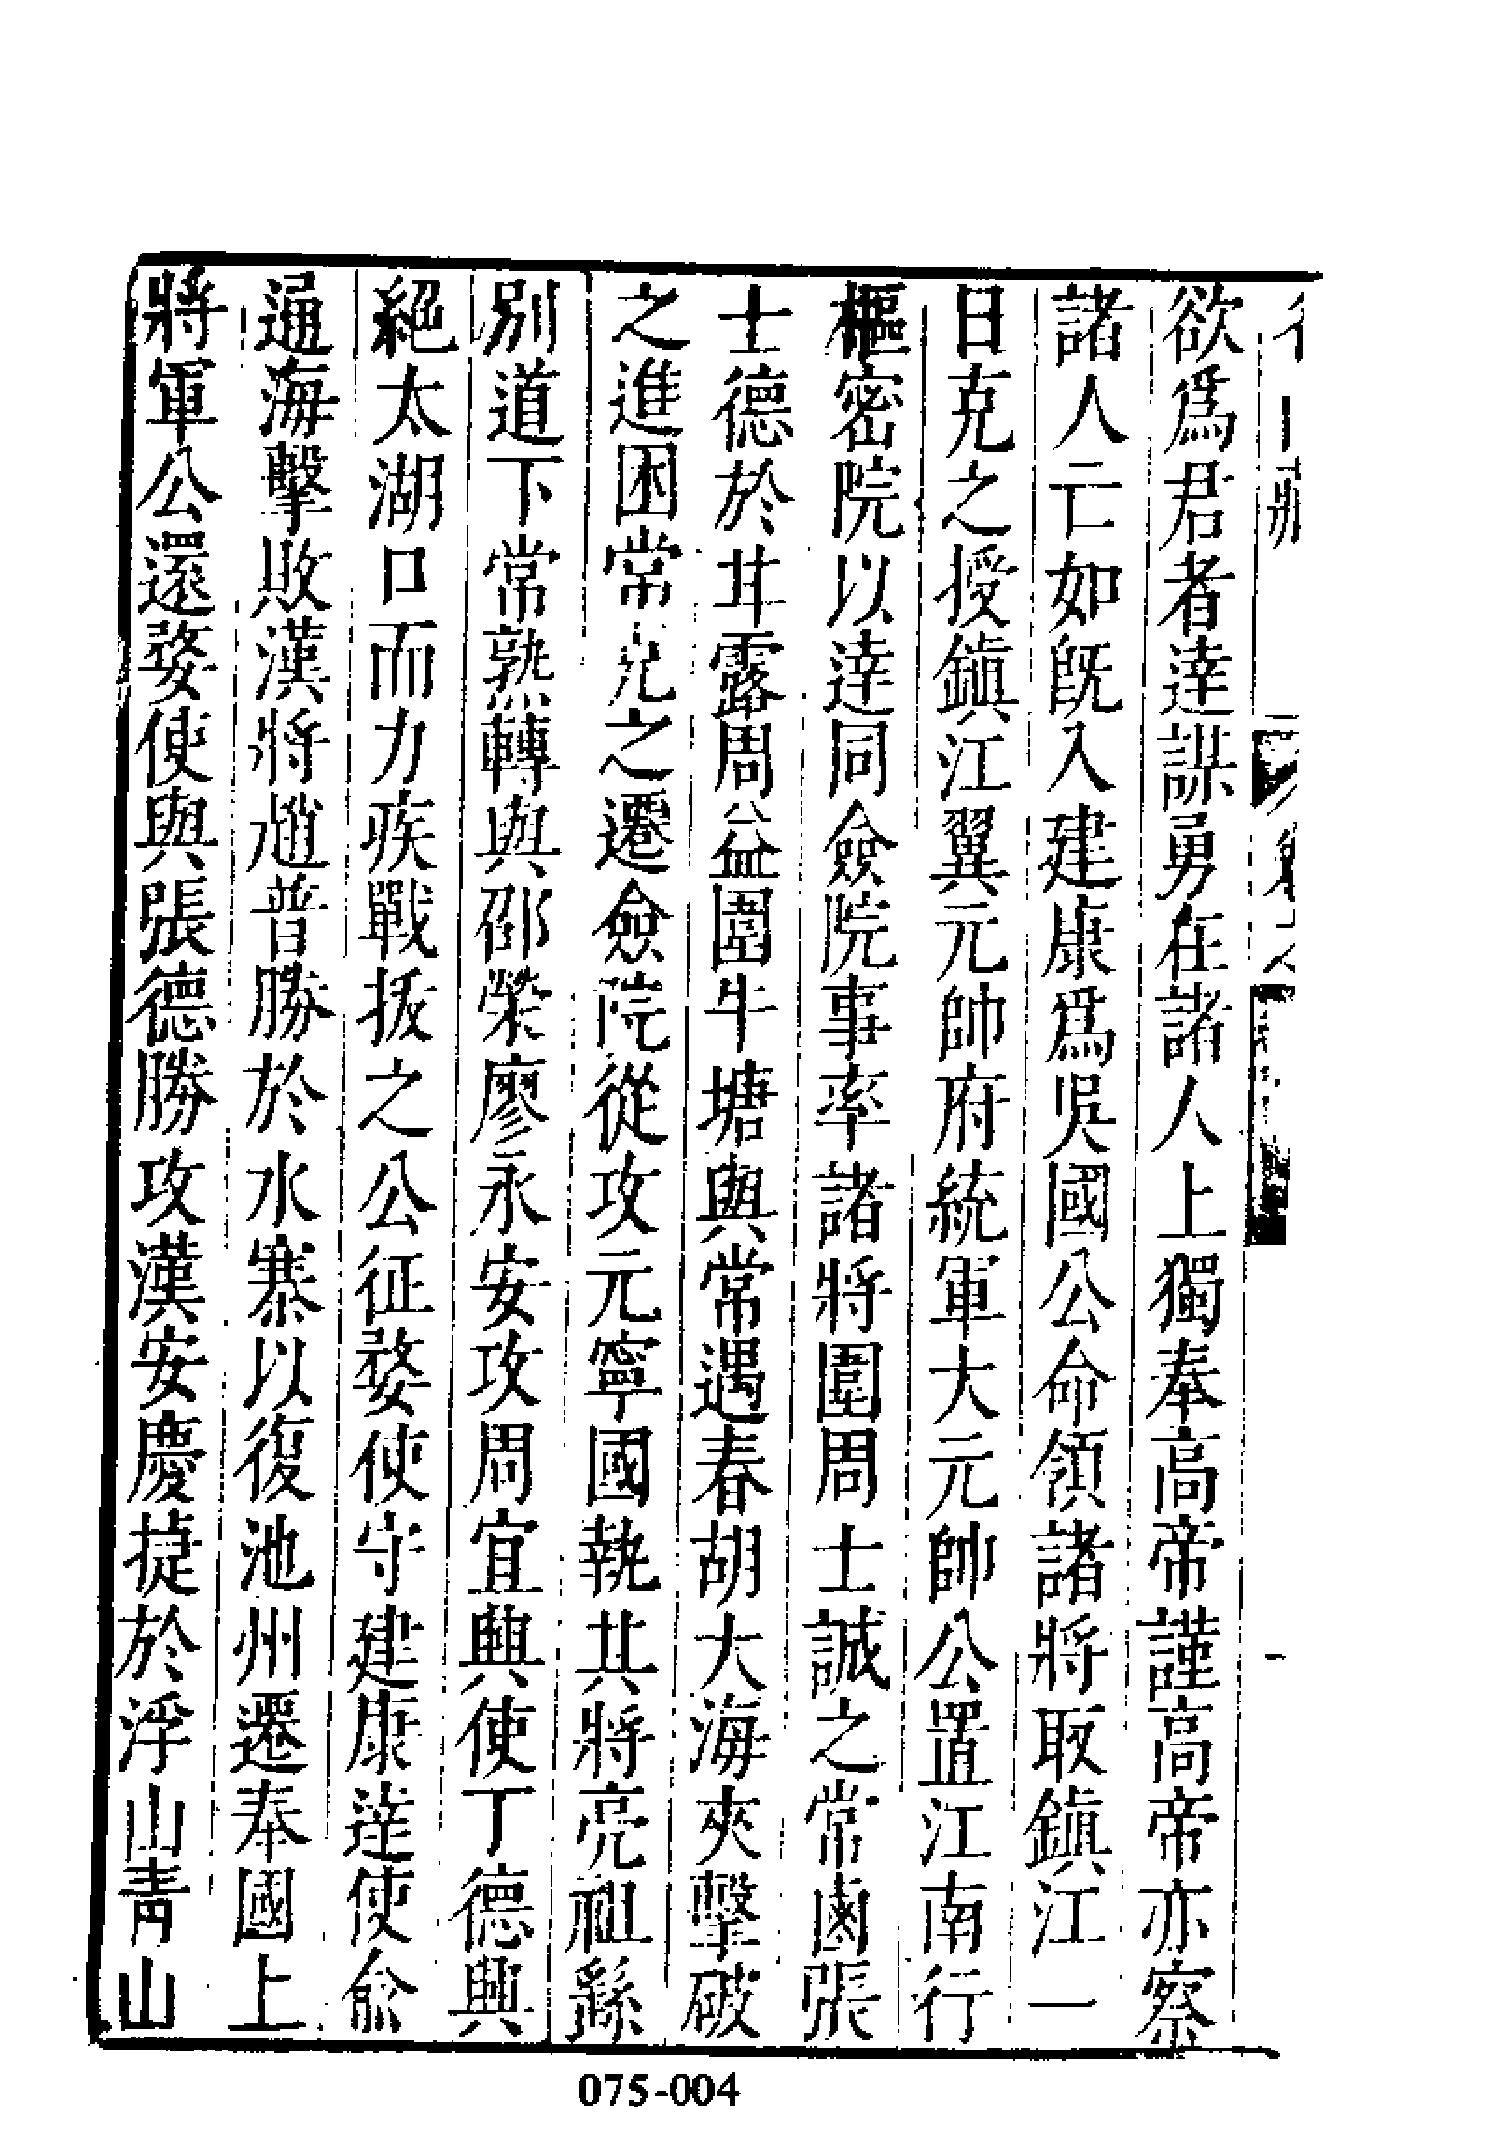 欲爲君者逹謀勇在諸人上獨奉高帝謹高帝亦察
諸人亡如旣入建康爲吳國公命領諸將取鎭江一
日克之授鎭江翼元帥府統軍大元帥公置江南行
樞密院以逹同僉院事率諸將圍周士誠之常鹵張
士德於甘露周益圍牛塘與常遇春胡大海夾擊破
之進困常克之遷僉院從攻元寧國執其將亮祖孫
別道下常熟轉與邵榮廖永安攻周宜興使丁德興
絕太湖口而力疾戰拔之公征婺使守建康逹使俞
通海擊敗漢將趙普勝於水寨以復池州遷奉國上
將軍公還婺使與張德勝攻漢安慶捷於浮山靑山
075-004